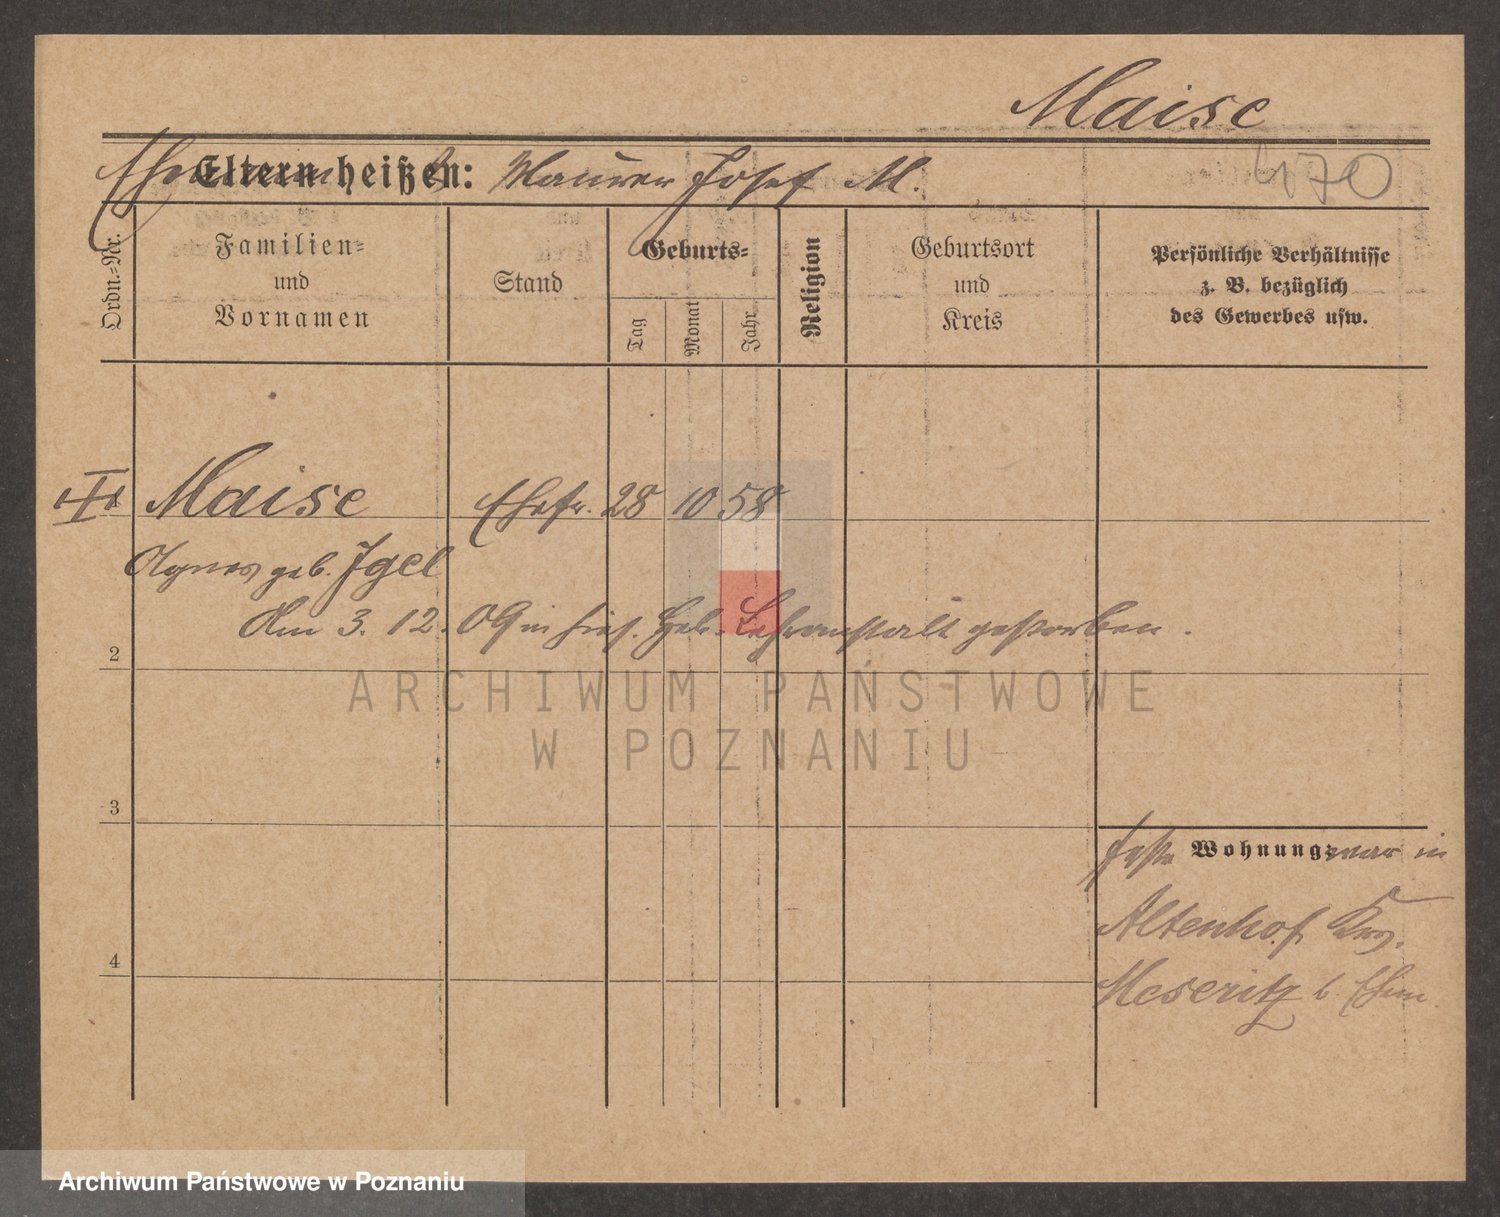 Maise
Ehemann
Eltern heißen: Maurer Josef M.
470
Ordn.=Nr.
Familien=
und
Vornamen
Stand
Geburts=
Tag
Monat
Jahr
Religion
Geburtsort
und
Kreis
Persönliche Verhältnisse
z. B. bezüglich
des Gewerbes usw.
1 Maise Ehefr. 28 10 58
Agnes geb. Igel
Am 3. 12. 09 in hies. Heb. Lehranstalt gestorben.
2
ARCHIWUM PAŃSTWOWE
W POZNANIU
3
Wohnung: war in
Altenhof Krs.
4
Meseritz b. Ehem.
Archiwum Państwowe w Poznaniu